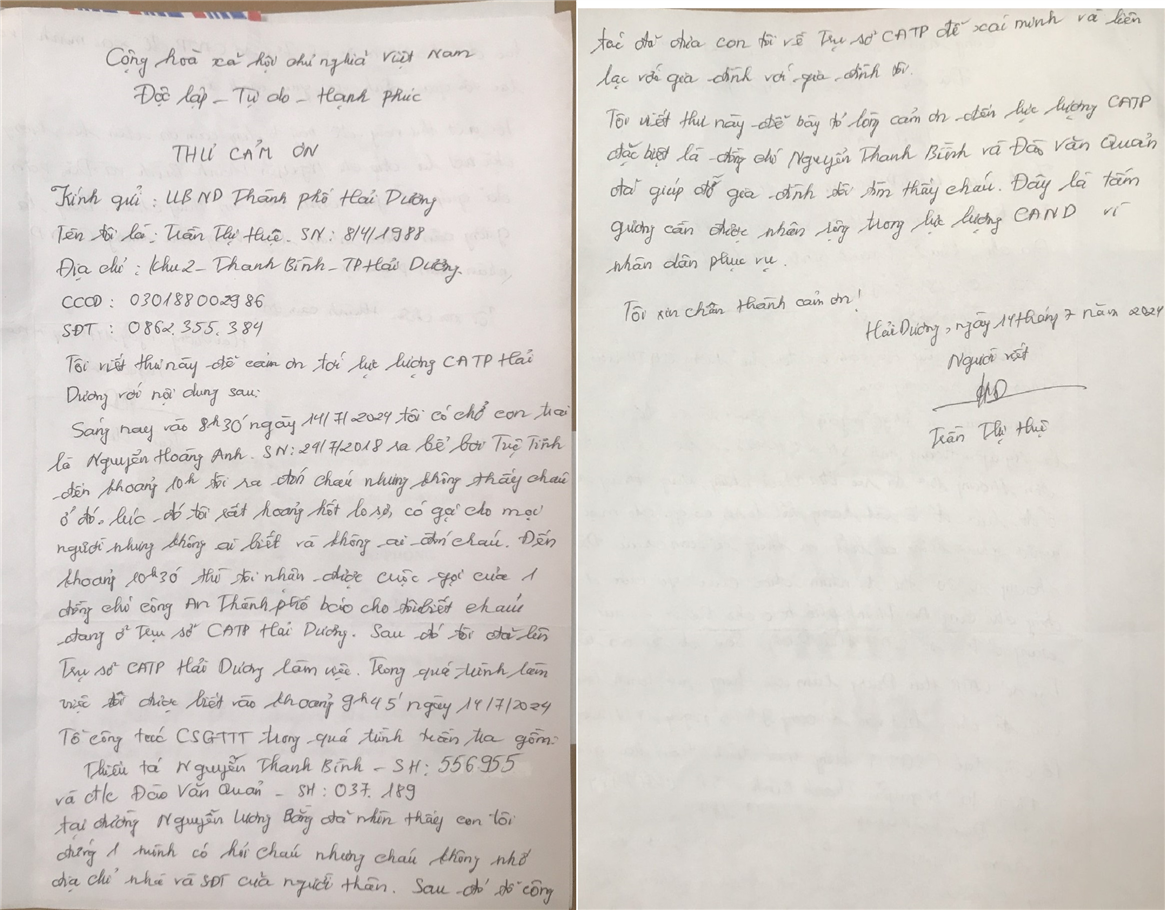 Cộng hoà xã hội chủ nghĩa Việt Nam
Độc lập - Tự do - Hạnh phúc
THƯ CẢM ƠN
Kính gửi : UBND Thành phố Hải Dương
Tên tôi là: Trần Thị Huệ. SN: 8/4/1988
Địa chỉ : Khu 2 - Thanh Bình - TP Hải Dương.
CCCD : 030188002986
SĐT : 0862.355.384
Tôi viết thư này để cảm ơn tới lực lượng CATP Hải
Dương với nội dung sau:
Sáng nay vào 8h30 ngày 14/7/2024 tôi có chở con trai
là Nguyễn Hoàng Anh. SN: 29/7/2018 ra bể bơi Tuệ Tĩnh
đến khoảng 10h tôi ra đón cháu nhưng không thấy cháu
ở đó. lúc đó tôi rất hoảng hốt lo sợ, có gọi cho mọi
người nhưng không ai biết và không ai đón cháu. Đến
khoảng 10h30 thì tôi nhận được cuộc gọi của 1
đồng chí công An Thành phố báo cho tôi biết cháu
đang ở Trụ sở CATP Hải Dương. Sau đó tôi đã lên
Trụ sở CATP Hải Dương làm việc. Trong quá trình làm
việc tôi được biết vào khoảng 9h45' ngày 14/7/2024
Tổ công tác CSGTTT trong quá trình tuần tra gồm:
Thiếu tá Nguyễn Thanh Bình - SH: 556955
và đ/c Đào Văn Quản - SH: 037.189
tại đường Nguyễn Lương Bằng đã nhìn thấy con tôi
đứng 1 mình có hỏi cháu nhưng cháu không nhớ
địa chỉ nhà và SĐT của người thân. Sau đó tổ công
tác đã đưa con tôi về Trụ sở CATP để xác minh và liên
lạc với gia đình với gia đình tôi.
Tôi viết thư này để bày tỏ lòng cảm ơn đến lực lượng CATP
đặc biệt là đồng chí Nguyễn Thanh Bình và Đào Văn Quản
đã giúp đỡ gia đình tôi tìm thấy cháu. Đây là tấm
gương cần được nhân rộng trong lực lượng CAND vì
nhân dân phục vụ.
Tôi xin chân thành cảm ơn!
Hải Dương, ngày 14 tháng 7 năm 2024
Người viết
Trần Thị Huệ